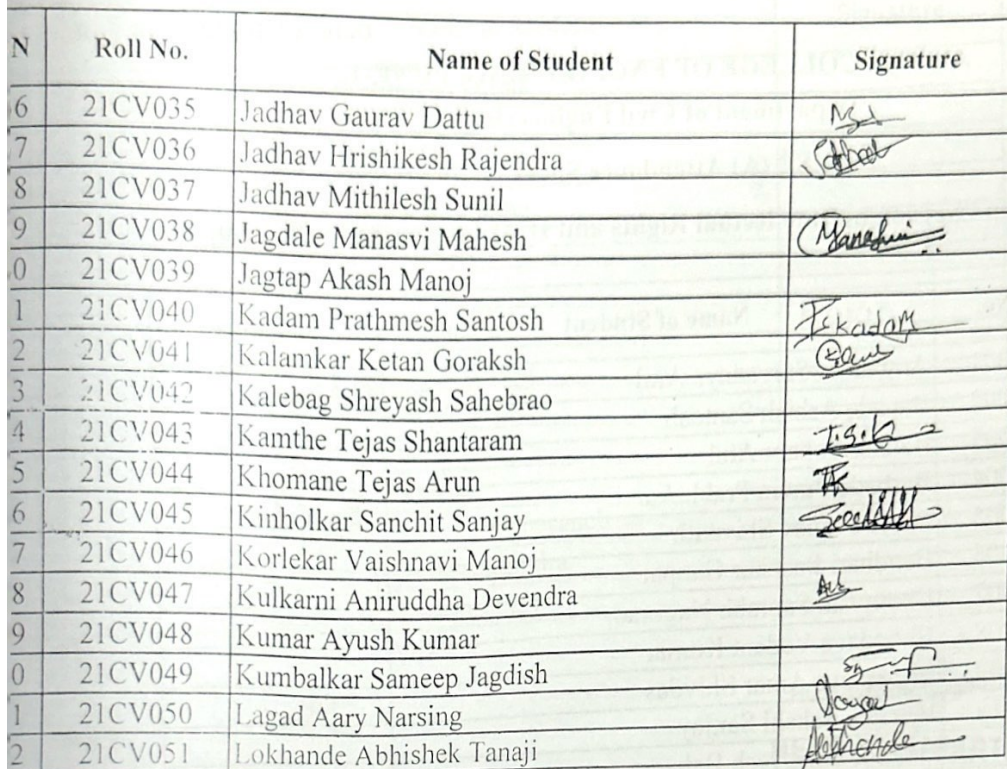 N Roll No. Name of Student Signature
6 21CV035 Jadhav Gaurav Dattu
7 21CV036 Jadhav Hrishikesh Rajendra
8 21CV037 Jadhav Mithilesh Sunil
9 21CV038 Jagdale Manasvi Mahesh
0 21CV039 Jagtap Akash Manoj
1 21CV040 Kadam Prathmesh Santosh
2 21CV041 Kalamkar Ketan Goraksh
3 21CV042 Kalebag Shreyash Sahebrao
4 21CV043 Kamthe Tejas Shantaram
5 21CV044 Khomane Tejas Arun
6 21CV045 Kinholkar Sanchit Sanjay
7 21CV046 Korlekar Vaishnavi Manoj
8 21CV047 Kulkarni Aniruddha Devendra
9 21CV048 Kumar Ayush Kumar
0 21CV049 Kumbalkar Sameep Jagdish
1 21CV050 Lagad Aary Narsing
2 21CV051 Lokhande Abhishek Tanaji